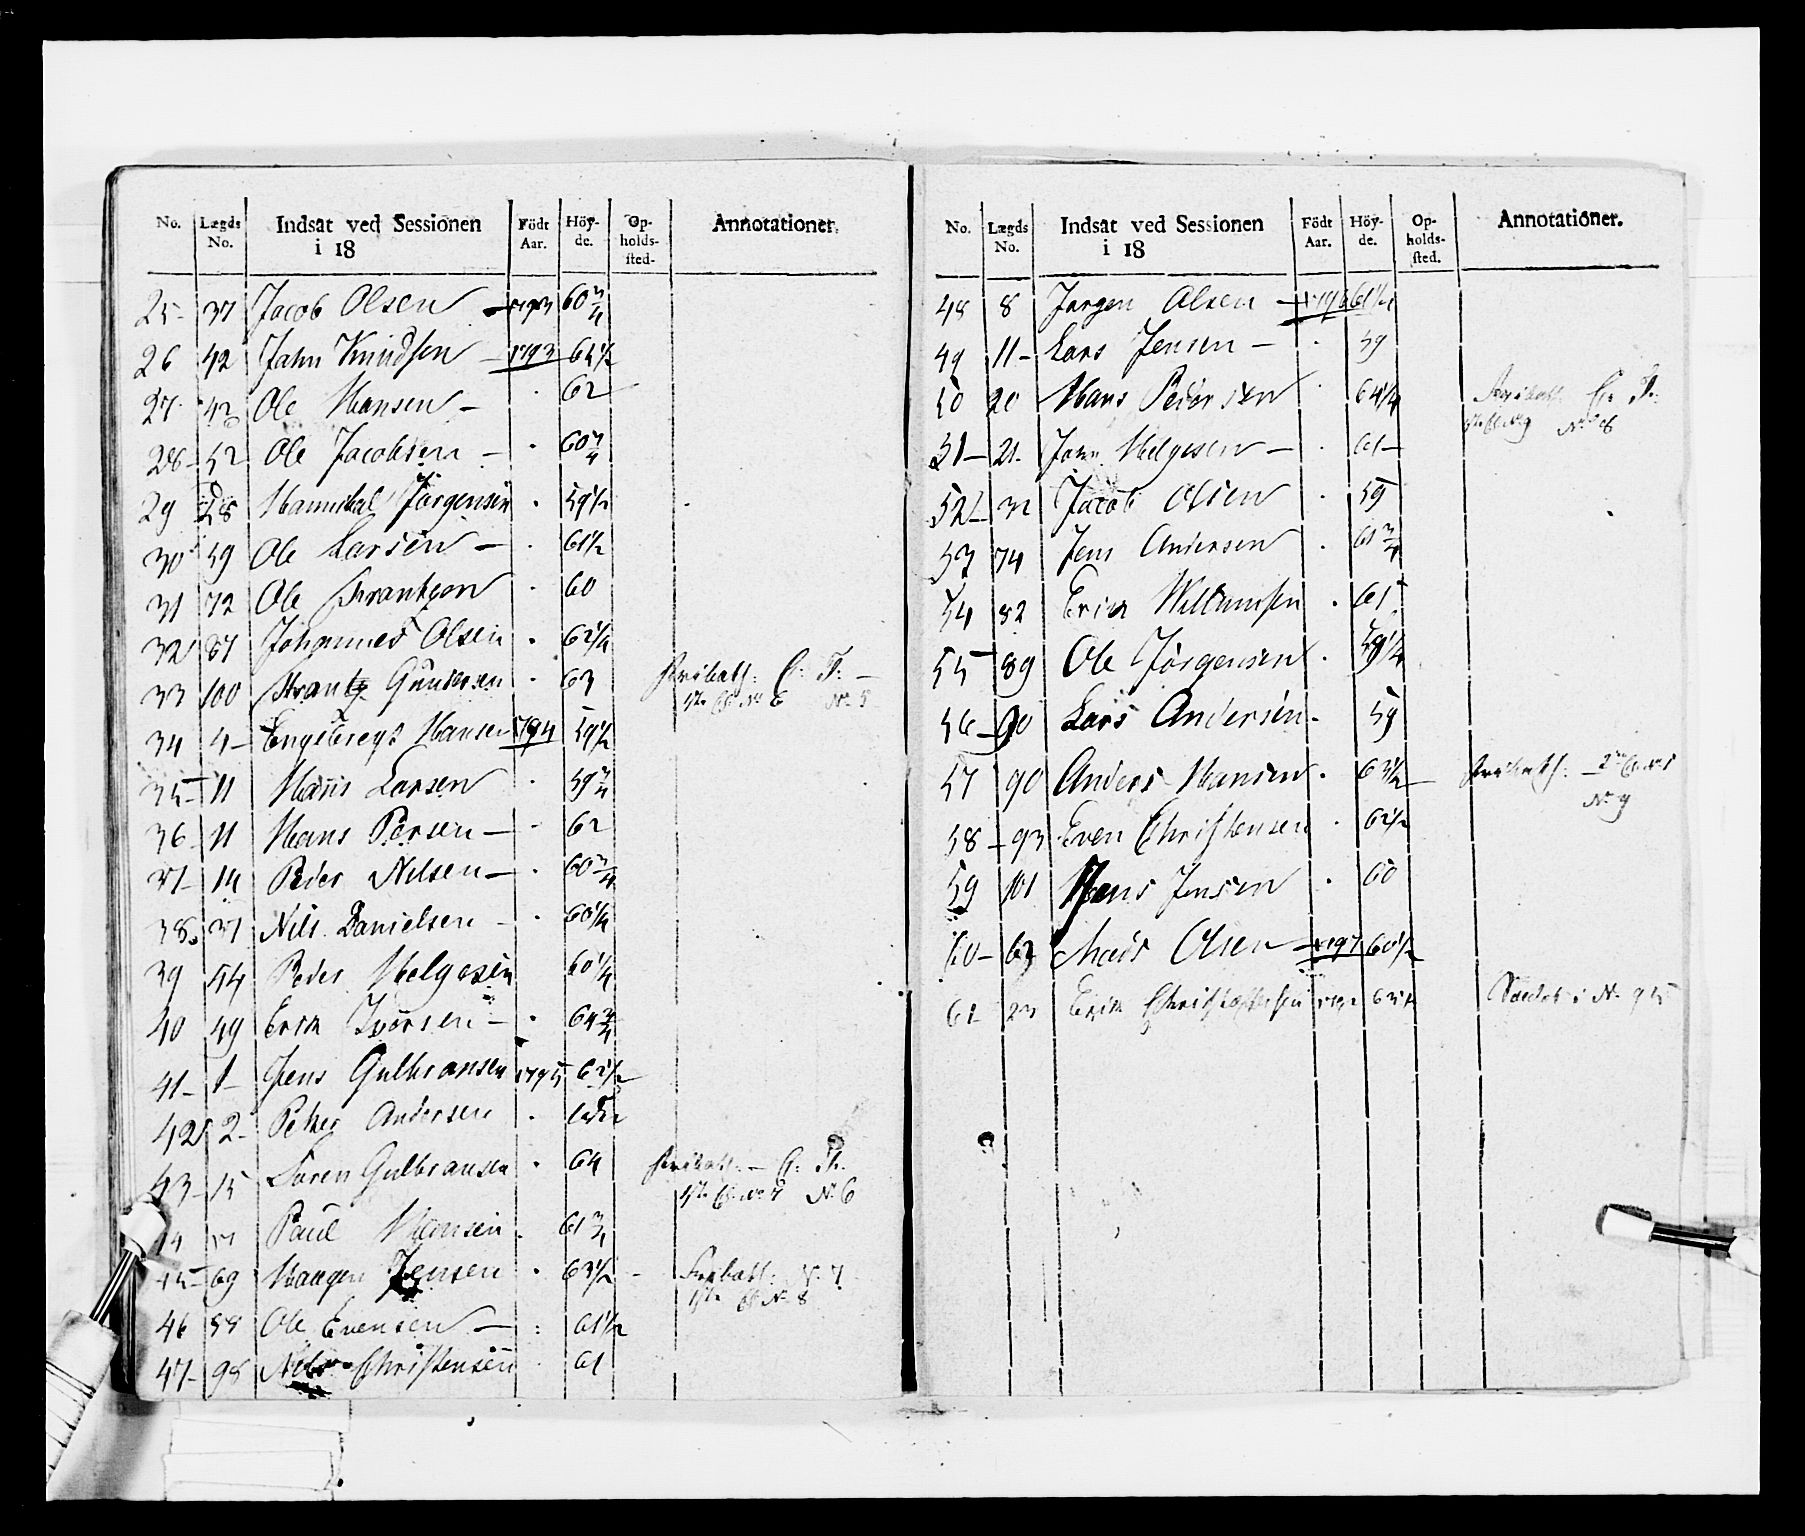 No. Lægds No. Indsat ved Sessionen i 18 Födt Aar. Höyde. Opholdssted. Annotationer.
25 37 Jacob Olsen 1793 60 3/4
26 42 Jahn Knudsen 1793 61 1/2
27 43 Ole Hansen 62
28 52 Ole Jacobsen 60 3/4
29 58 Hannibal Jörgensen 59 1/2
30 59 Ole Larsen 61 1/2
31 72 Ole Frantzen 60
32 87 Johannes Olsen 62 1/4
33 100 Frantz Gundersen 63
34 4 Engebregt Hansen 1794 59 1/2
35 11 Hans Larsen 59 3/4
36 11 Hans Persen 62
37 14 Peder Nilsen 60 3/4
38 37 Nils Danielsen 60 1/4
39 44 Peder Helgesen 60 1/4
40 49 Erik Ivorsen 64 3/4
41 1 Jens Gulbransen 1795 62 1/2
42 2 Petter Andersen
43 15 Sören Gulbransen 64
No. 6
Paul Hansen 61 3/4
45 69 Haagen Jensen 63 1/2 No. 7
No. 8
46 Ole Evensen 61 1/2
47 98 Nils Christensen 61
No. Lægds No. Indsat ved Sessionen i 18 Födt Aar. Höyde. Opholdssted. Annotationer.
48 8 Jörgen Olsen 1796 61 1/4
49 11 Lars Jensen 59
50 20 Hans Pedersen 64 1/4
No. 8
51 21 Helgesen 61
52 Jacob Olsen 59
53 74 Jens Andersen 61 3/4
54 82 Erik Willumsen 61
55 89 Ole Jörgensen 59 1/4
56 90 Lars Andersen 59
57 90 Anders Hansen 63 1/2
No. 9
58 93 Even Christensen 62 1/2
59 101 Hans Jensen 60
60 63 Mads Olsen 1797 60 1/2
61 23 Erik Christophersen